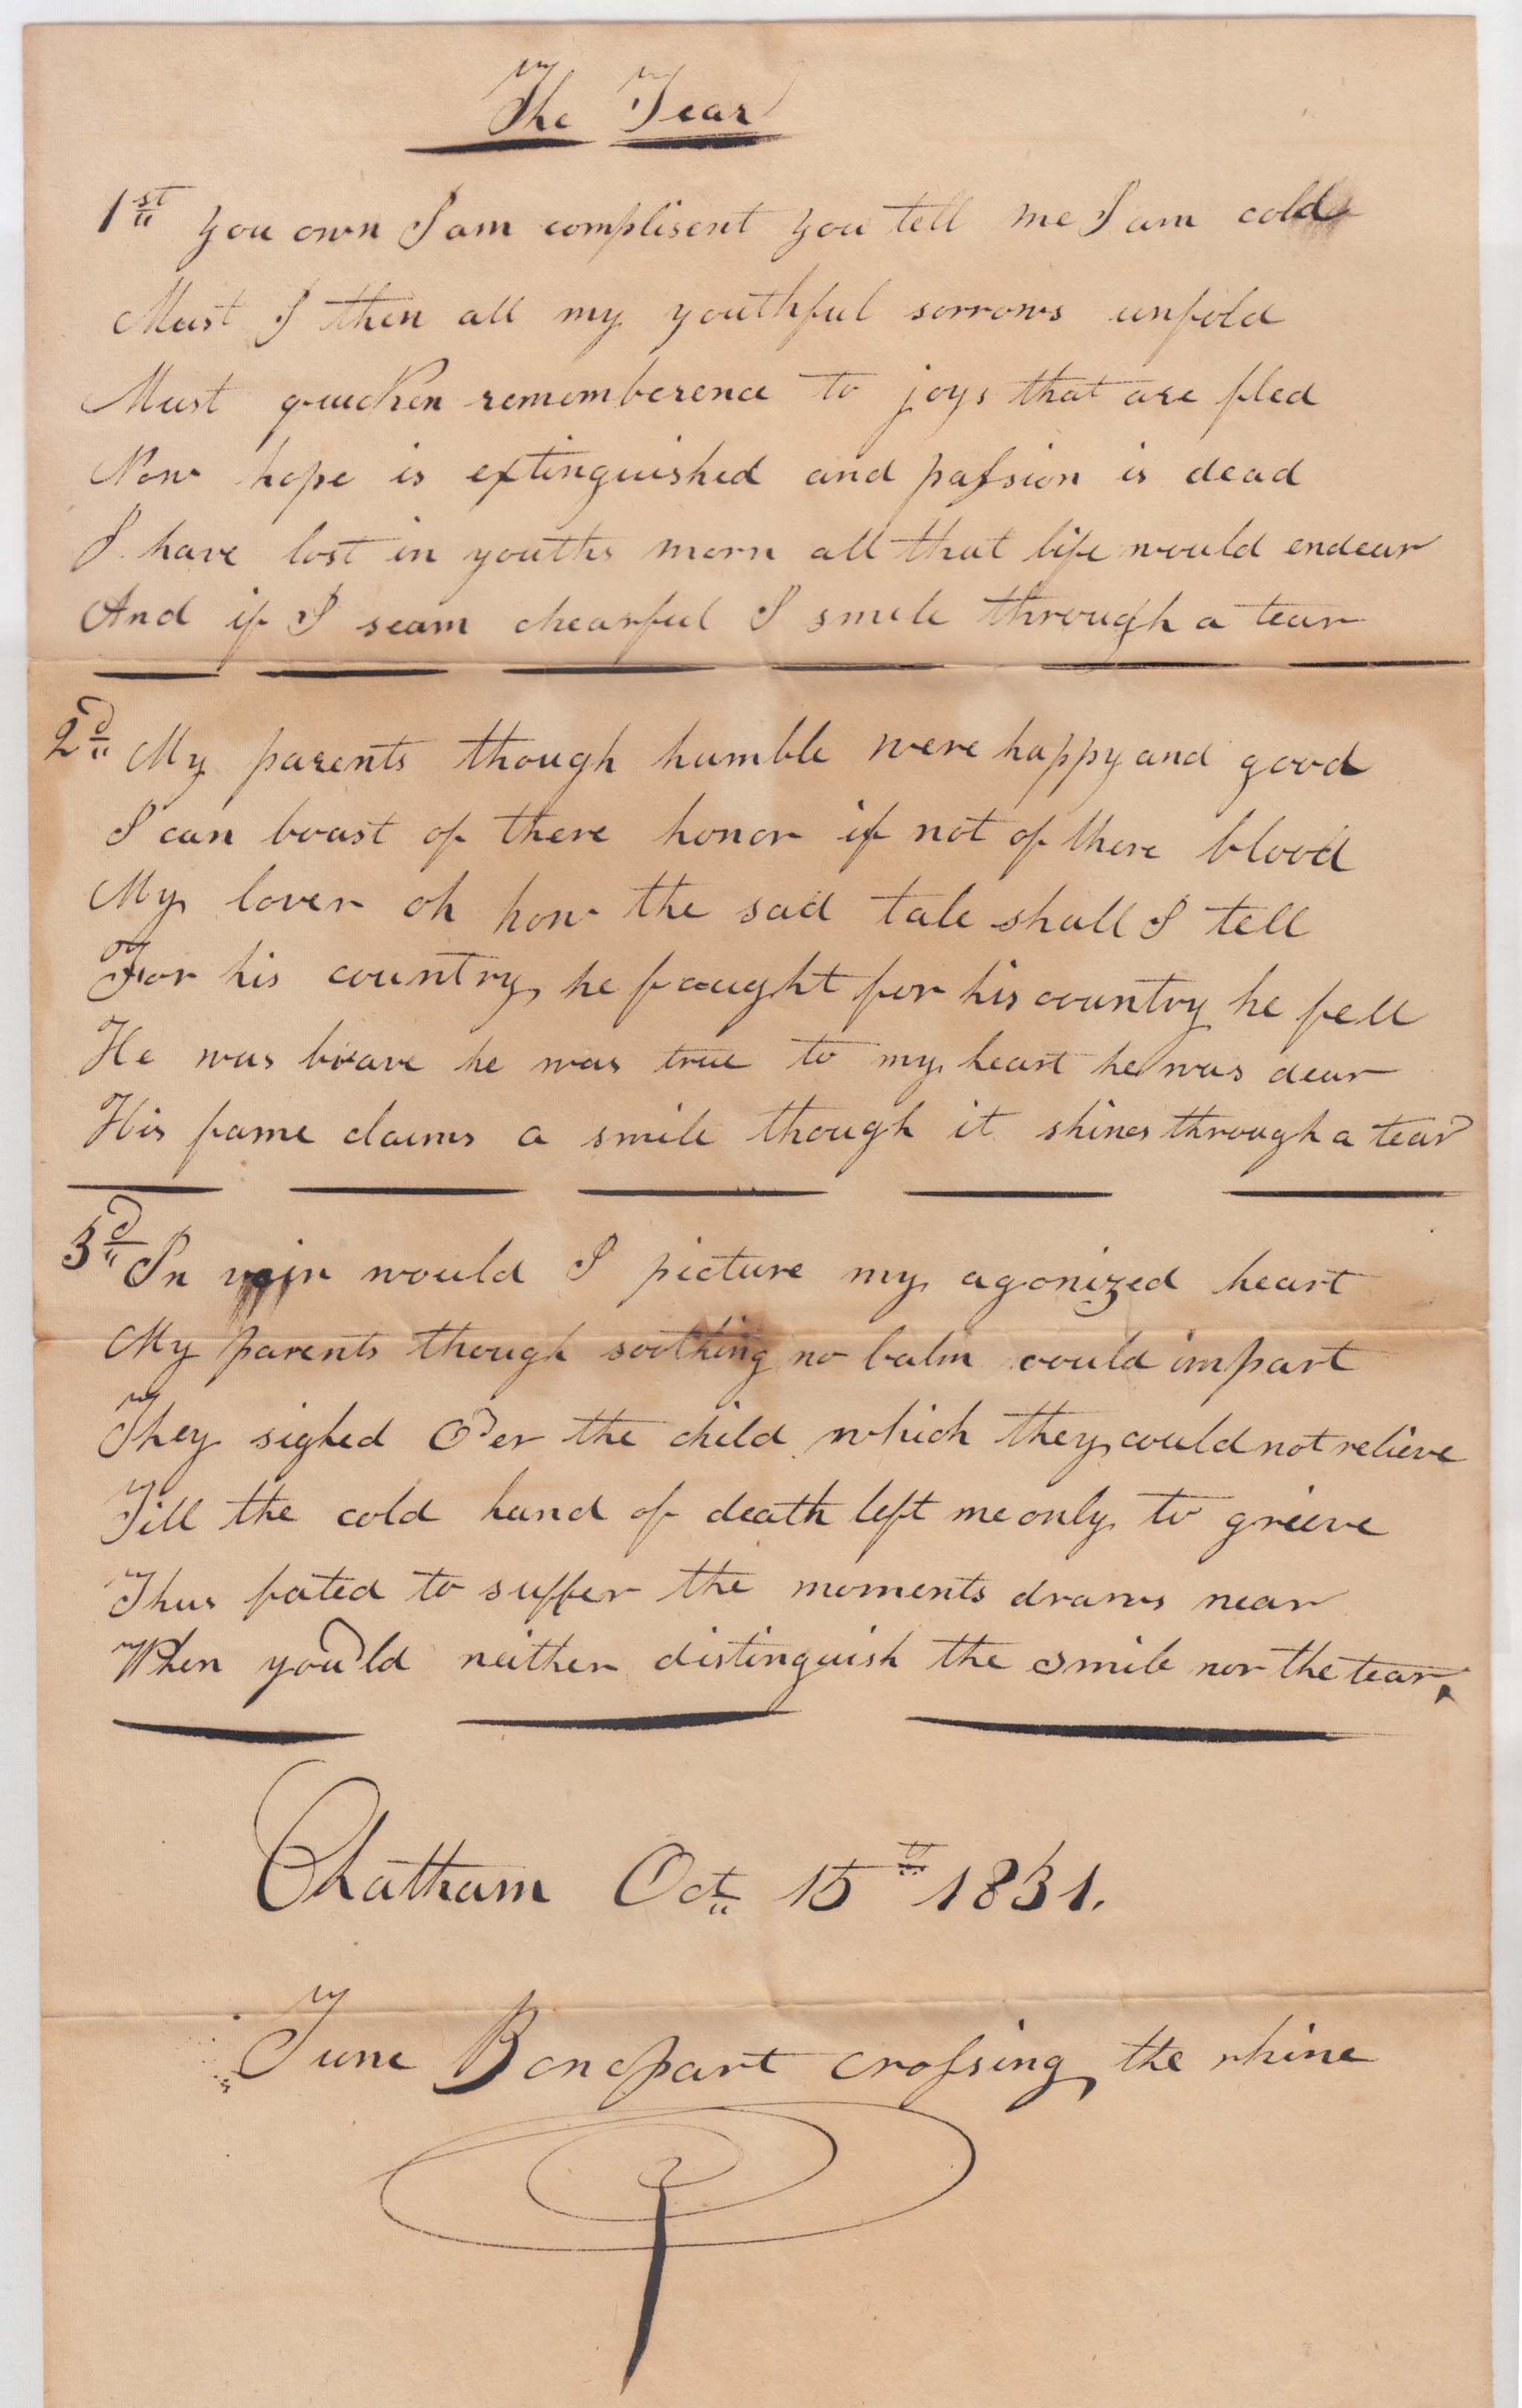 The Tear
1st You own I am complisent you tell me I am cold
Must I then all my youthful sorrows unfold
Must quicken rememberence to joys that are fled
Now hope is extinguished and passion is dead
I have lost in youths morn all that life would endear
And if I seam chearful I smile through a tear
2d My parents though humble were happy and good
I can boast of there honor if not of there blood
My lover oh how the sad tale shall I tell
For his country he faught for his country he fell
He was brave he was true to my heart he was dear
His fame claims a smile though it shines through a tear
3d In vain would I picture my agonized heart
My parents though soothing no balm could impart
They sighed O'er the child which they could not relieve
Till the cold hand of death left me only to grieve
Thus fated to suffer the moments draws near
When you'ld neither distinguish the smile nor the tear,
Chatham Oct. 15th 1831.
Tune Bonepart crossing the rhine